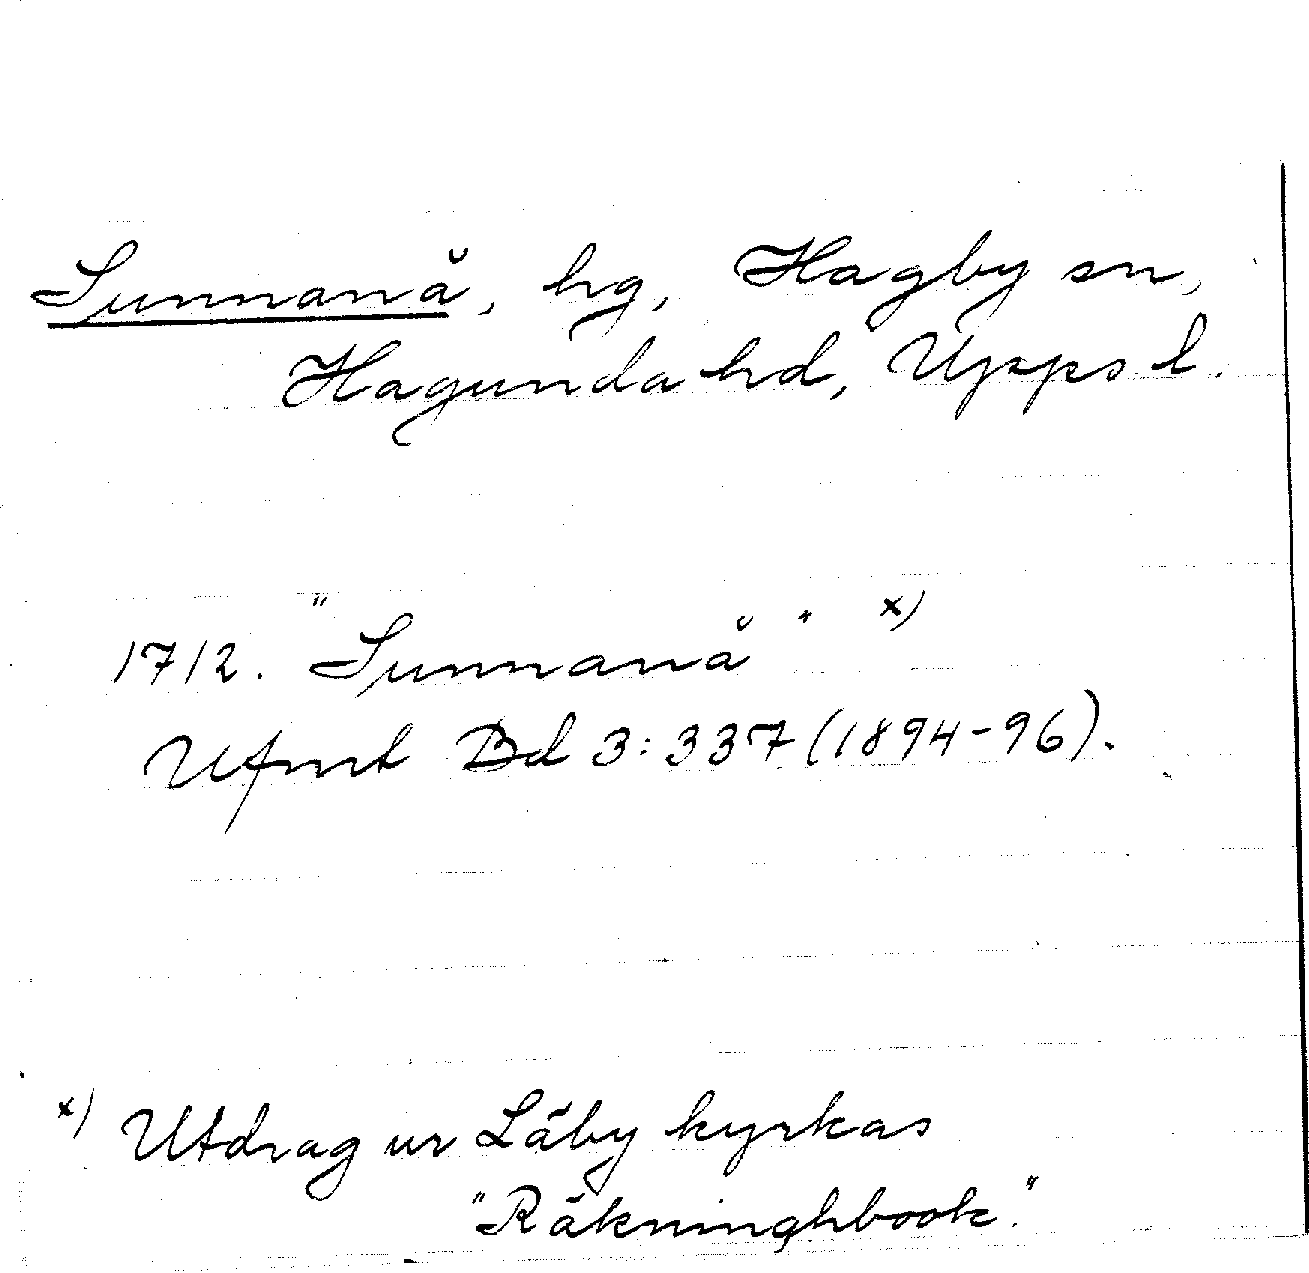 Sunnanå, hg, Hagby sn,
Hagunda hd, Upps l.
1712. "Sunnanå" x)
Ufmt Bd 3:337 (1894-96).
x) Utdrag ur Läby kyrkas
"Räkninghbook."